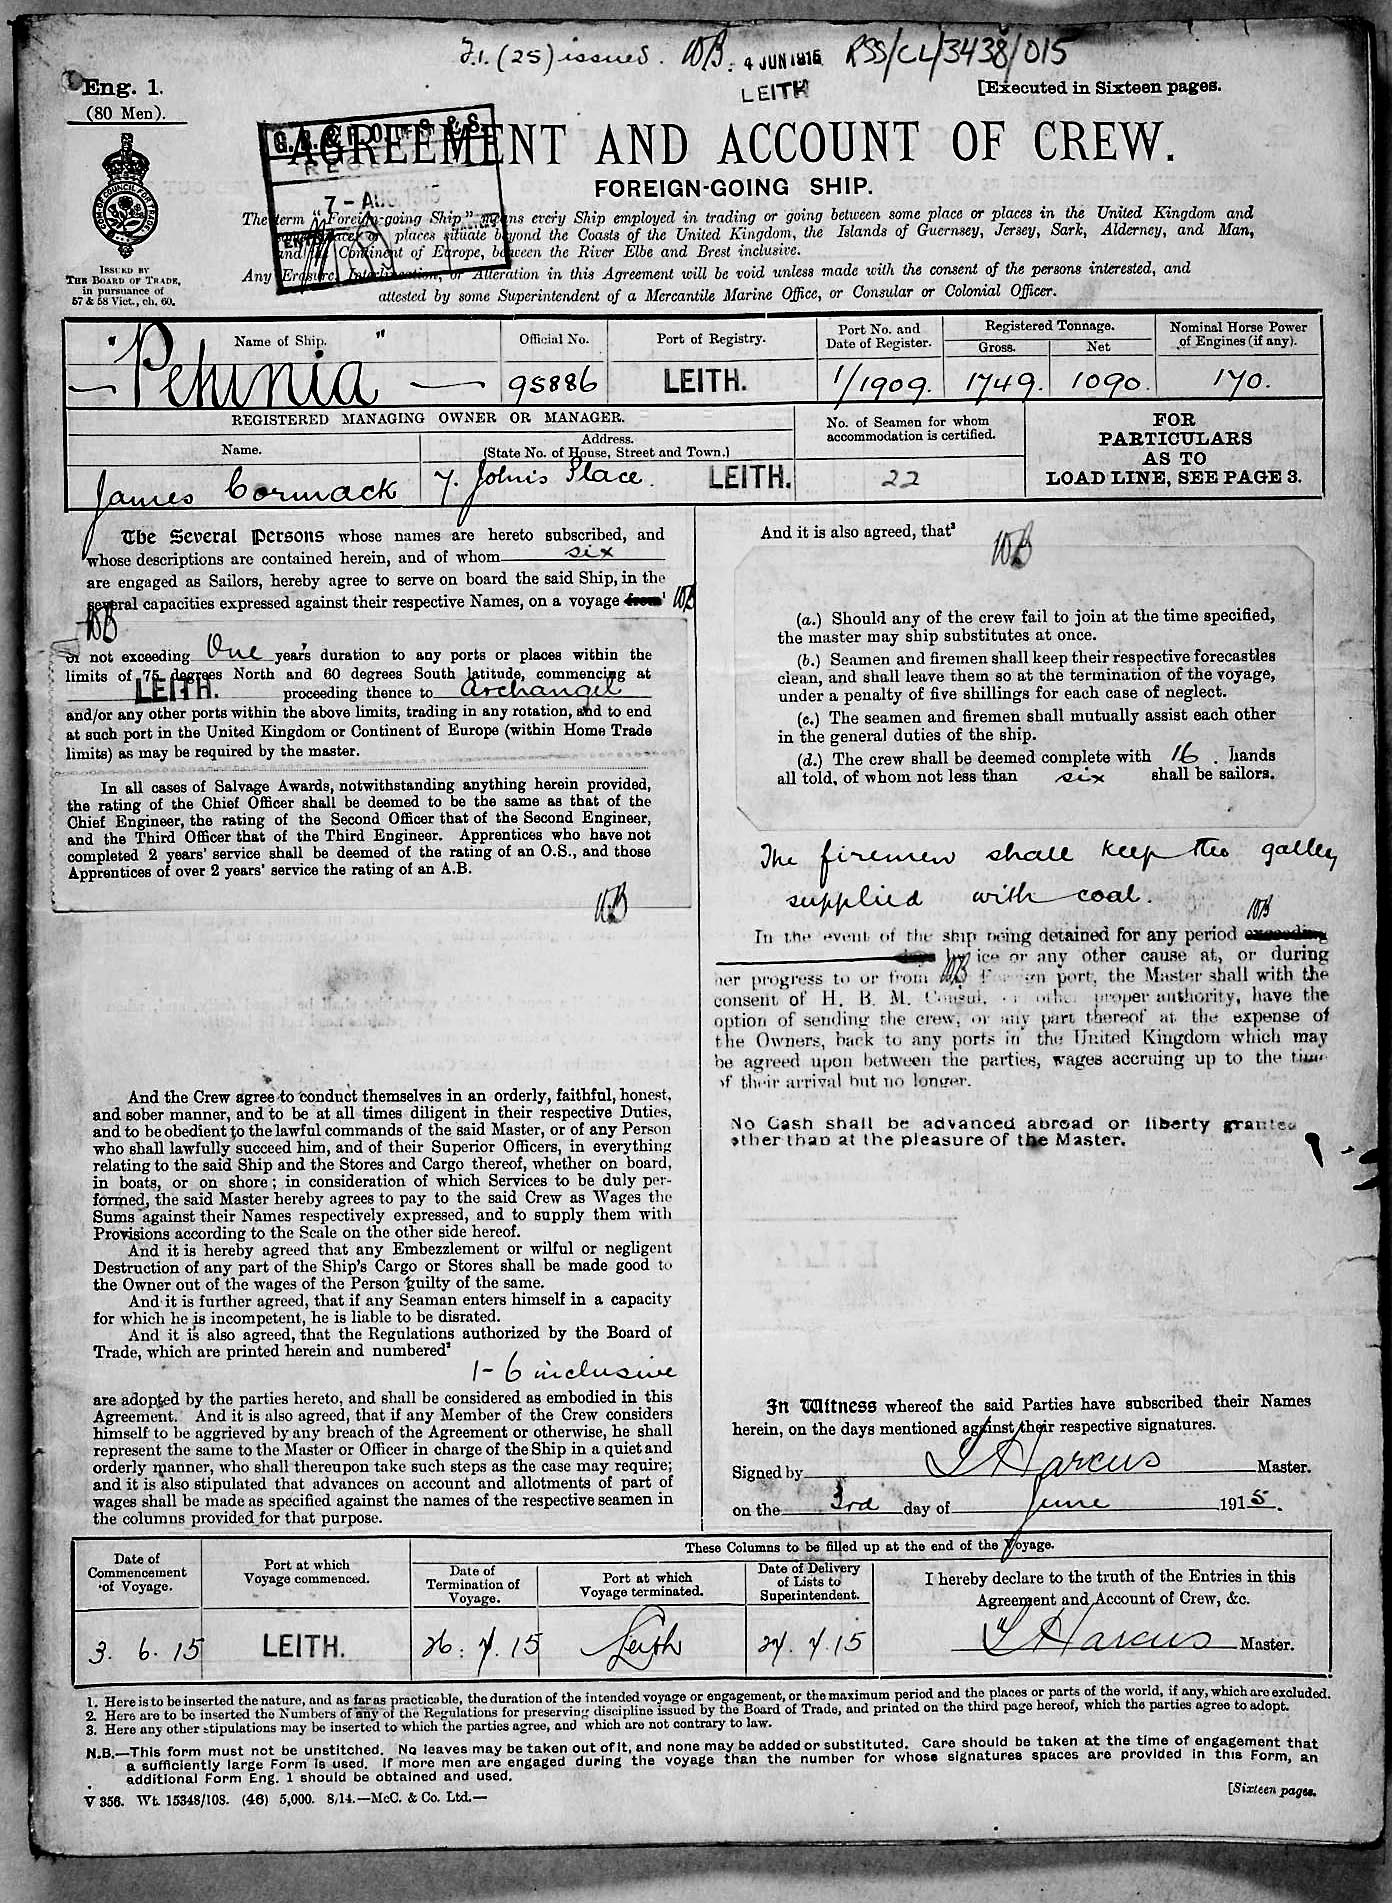 F.1. (25) issued. WB. 4 JUN 1915 RSS/CL/3438/015
LEITH
Eng. 1.
[Executed in Sixteen pages.
(80 Men).
AGREEMENT AND ACCOUNT OF CREW.
FOREIGN-GOING SHIP.
7 - AUG 1915
The term "Foreign-going Ship" means every Ship employed in trading or going between some place or places in the United Kingdom and
some place or places situate beyond the Coasts of the United Kingdom, the Islands of Guernsey, Jersey, Sark, Alderney, and Man,
and the Continent of Europe, between the River Elbe and Brest inclusive.
Any Erasure, Interlineation, or Alteration in this Agreement will be void unless made with the consent of the persons interested, and
attested by some Superintendent of a Mercantile Marine Office, or Consular or Colonial Officer.
ISSUED BY
THE BOARD OF TRADE,
in pursuance of
57 & 58 Vict., ch. 60.
Name of Ship. Official No. Port of Registry. Port No. and Date of Register. Registered Tonnage. Gross. Net Nominal Horse Power of Engines (if any).
"Petunia" 95886 LEITH. 1/1909. 1749. 1090. 170.
REGISTERED MANAGING OWNER OR MANAGER.
Name. Address. (State No. of House, Street and Town.)
No. of Seamen for whom accommodation is certified.
FOR
PARTICULARS
AS TO
LOAD LINE, SEE PAGE 3.
James Cormack 7. John's Place. LEITH. 22
The Several Persons whose names are hereto subscribed, and
whose descriptions are contained herein, and of whom six
are engaged as Sailors, hereby agree to serve on board the said Ship, in the
several capacities expressed against their respective Names, on a voyage from¹ WB
WB
of not exceeding One year's duration to any ports or places within the
limits of 75 degrees North and 60 degrees South latitude, commencing at
LEITH. proceeding thence to Archangel
and/or any other ports within the above limits, trading in any rotation, and to end
at such port in the United Kingdom or Continent of Europe (within Home Trade
limits) as may be required by the master.
In all cases of Salvage Awards, notwithstanding anything herein provided,
the rating of the Chief Officer shall be deemed to be the same as that of the
Chief Engineer, the rating of the Second Officer that of the Second Engineer,
and the Third Officer that of the Third Engineer. Apprentices who have not
completed 2 years' service shall be deemed of the rating of an O.S., and those
Apprentices of over 2 years' service the rating of an A.B.
WB
And the Crew agree to conduct themselves in an orderly, faithful, honest,
and sober manner, and to be at all times diligent in their respective Duties,
and to be obedient to the lawful commands of the said Master, or of any Person
who shall lawfully succeed him, and of their Superior Officers, in everything
relating to the said Ship and the Stores and Cargo thereof, whether on board,
in boats, or on shore; in consideration of which Services to be duly per-
formed, the said Master hereby agrees to pay to the said Crew as Wages the
Sums against their Names respectively expressed, and to supply them with
Provisions according to the Scale on the other side hereof.
And it is hereby agreed that any Embezzlement or wilful or negligent
Destruction of any part of the Ship's Cargo or Stores shall be made good to
the Owner out of the wages of the Person guilty of the same.
And it is further agreed, that if any Seaman enters himself in a capacity
for which he is incompetent, he is liable to be disrated.
And it is also agreed, that the Regulations authorized by the Board of
Trade, which are printed herein and numbered²
1-6 inclusive
are adopted by the parties hereto, and shall be considered as embodied in this
Agreement. And it is also agreed, that if any Member of the Crew considers
himself to be aggrieved by any breach of the Agreement or otherwise, he shall
represent the same to the Master or Officer in charge of the Ship in a quiet and
orderly manner, who shall thereupon take such steps as the case may require;
and it is also stipulated that advances on account and allotments of part of
wages shall be made as specified against the names of the respective seamen in
the columns provided for that purpose.
And it is also agreed, that³
WB
(a.) Should any of the crew fail to join at the time specified,
the master may ship substitutes at once.
(b.) Seamen and firemen shall keep their respective forecastles
clean, and shall leave them so at the termination of the voyage,
under a penalty of five shillings for each case of neglect.
(c.) The seamen and firemen shall mutually assist each other
in the general duties of the ship.
(d.) The crew shall be deemed complete with 16. hands
all told, of whom not less than six shall be sailors.
The firemen shall keep the galley
supplied with coal.
WB
In the event of the ship being detained for any period exceeding
days by ice or any other cause at, or during
her progress to or from WB Foreign port, the Master shall with the
consent of H. B. M. Consul, or other proper authority, have the
option of sending the crew, or any part thereof at the expense of
the Owners, back to any ports in the United Kingdom which may
be agreed upon between the parties, wages accruing up to the time
of their arrival but no longer.
No Cash shall be advanced abroad or liberty granted
other than at the pleasure of the Master.
In Witness whereof the said Parties have subscribed their Names
herein, on the days mentioned against their respective signatures.
Signed by J Harcus Master.
on the 3rd day of June 1915.
These Columns to be filled up at the end of the Voyage.
Date of Commencement of Voyage. Port at which Voyage commenced. Date of Termination of Voyage. Port at which Voyage terminated. Date of Delivery of Lists to Superintendent.
I hereby declare to the truth of the Entries in this
Agreement and Account of Crew, &c.
3. 6. 15 LEITH. 26. 7. 15 Leith 27. 7. 15 J Harcus Master.
1. Here is to be inserted the nature, and as far as practicable, the duration of the intended voyage or engagement, or the maximum period and the places or parts of the world, if any, which are excluded.
2. Here are to be inserted the Numbers of any of the Regulations for preserving discipline issued by the Board of Trade, and printed on the third page hereof, which the parties agree to adopt.
3. Here any other stipulations may be inserted to which the parties agree, and which are not contrary to law.
N.B.—This form must not be unstitched. No leaves may be taken out of it, and none may be added or substituted. Care should be taken at the time of engagement that
a sufficiently large Form is used. If more men are engaged during the voyage than the number for whose signatures spaces are provided in this Form, an
additional Form Eng. 1 should be obtained and used.
V 356. Wt. 15348/108. (46) 5,000. 8/14.—McC. & Co. Ltd.—
[Sixteen pages.